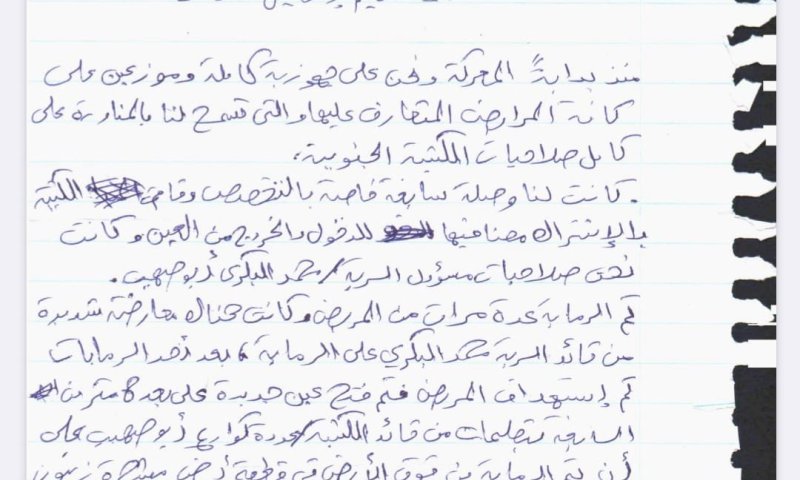 منذ بداية المعركة ونحن على جهوزية كاملة وموزعين على
كافة المرابض المتعارف عليها والتي تسمح لنا بالمناورة على
كامل صلاحيات الكتيبة الجنوبية،
. كانت لنا وصلة سابقة خاصة بالتخصص وقامت الكتيبة
بالإشتراك معنا فيها للدخول والخروج من العين وكانت
تحت صلاحيات مسؤول السرية/ محمد البكري أبو صهيب.
تم الرماية عدة مرات من المربض وكانت هناك معارضة شديدة
من قائد السرية محمد البكري على الرماية، بعد أحد الرمايات
تم إستهداف المربض فتم فتح عين جديدة على بعد متر من
السابقة بتعليمات من قائد الكتيبة/ أبو صهيب على
أن تتم الرماية من فوق الأرض في قطعة أرض زيتون